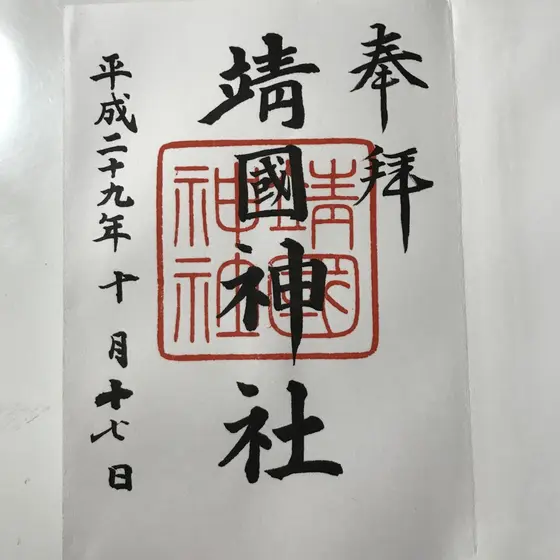 奉拝
靖國神社
平成二十九年十月十七日
靖國
神社